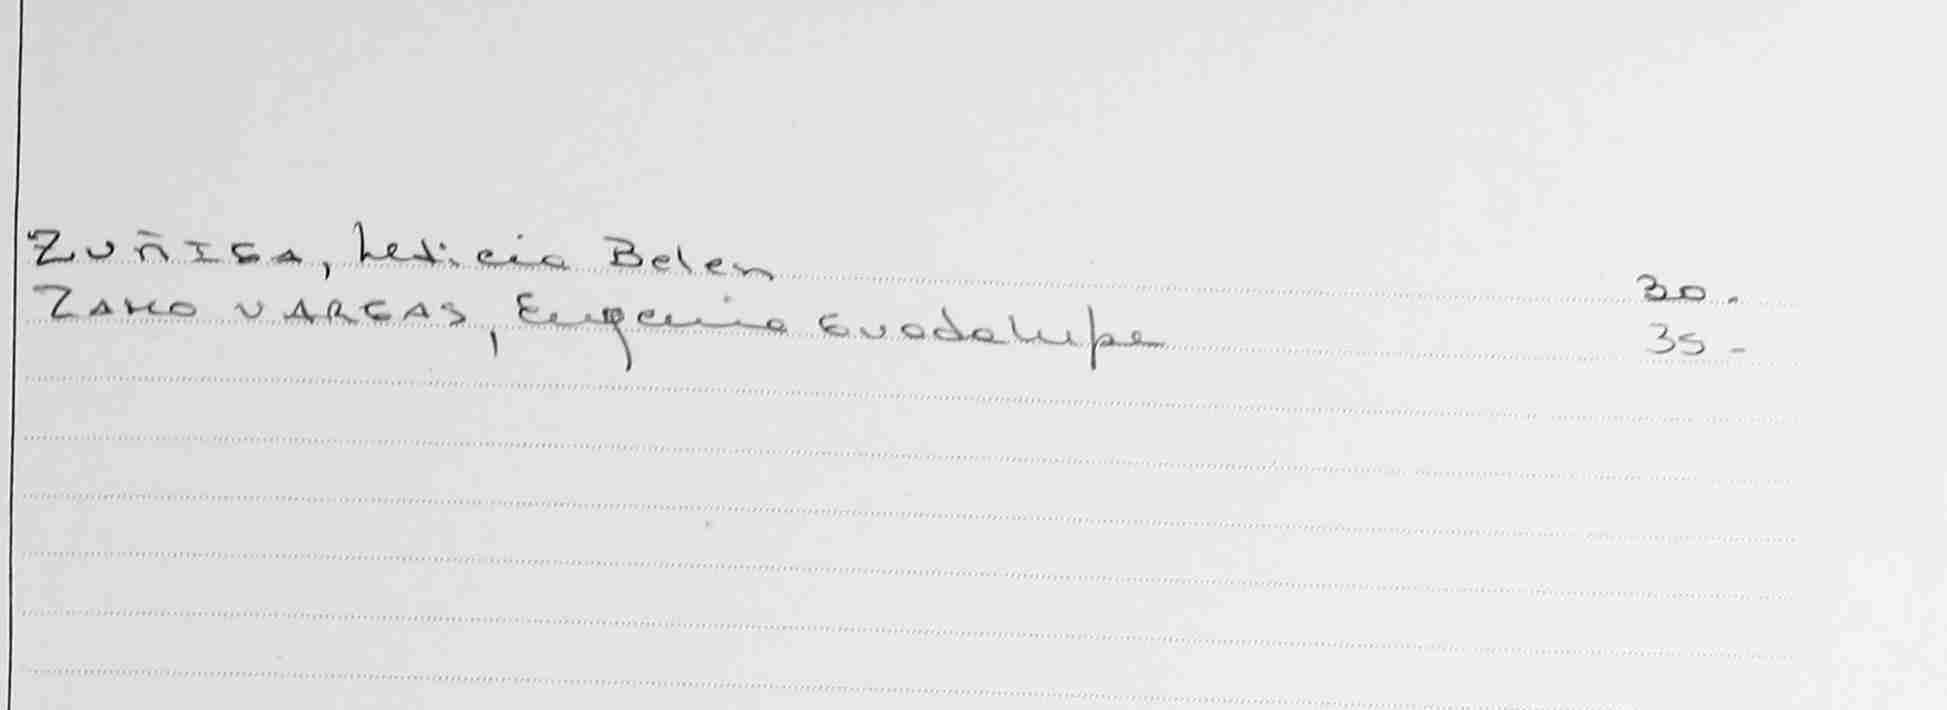 ZUÑIGA, Leticia Belen 30.
VARGAS, Eugenia Guadalupe 35-